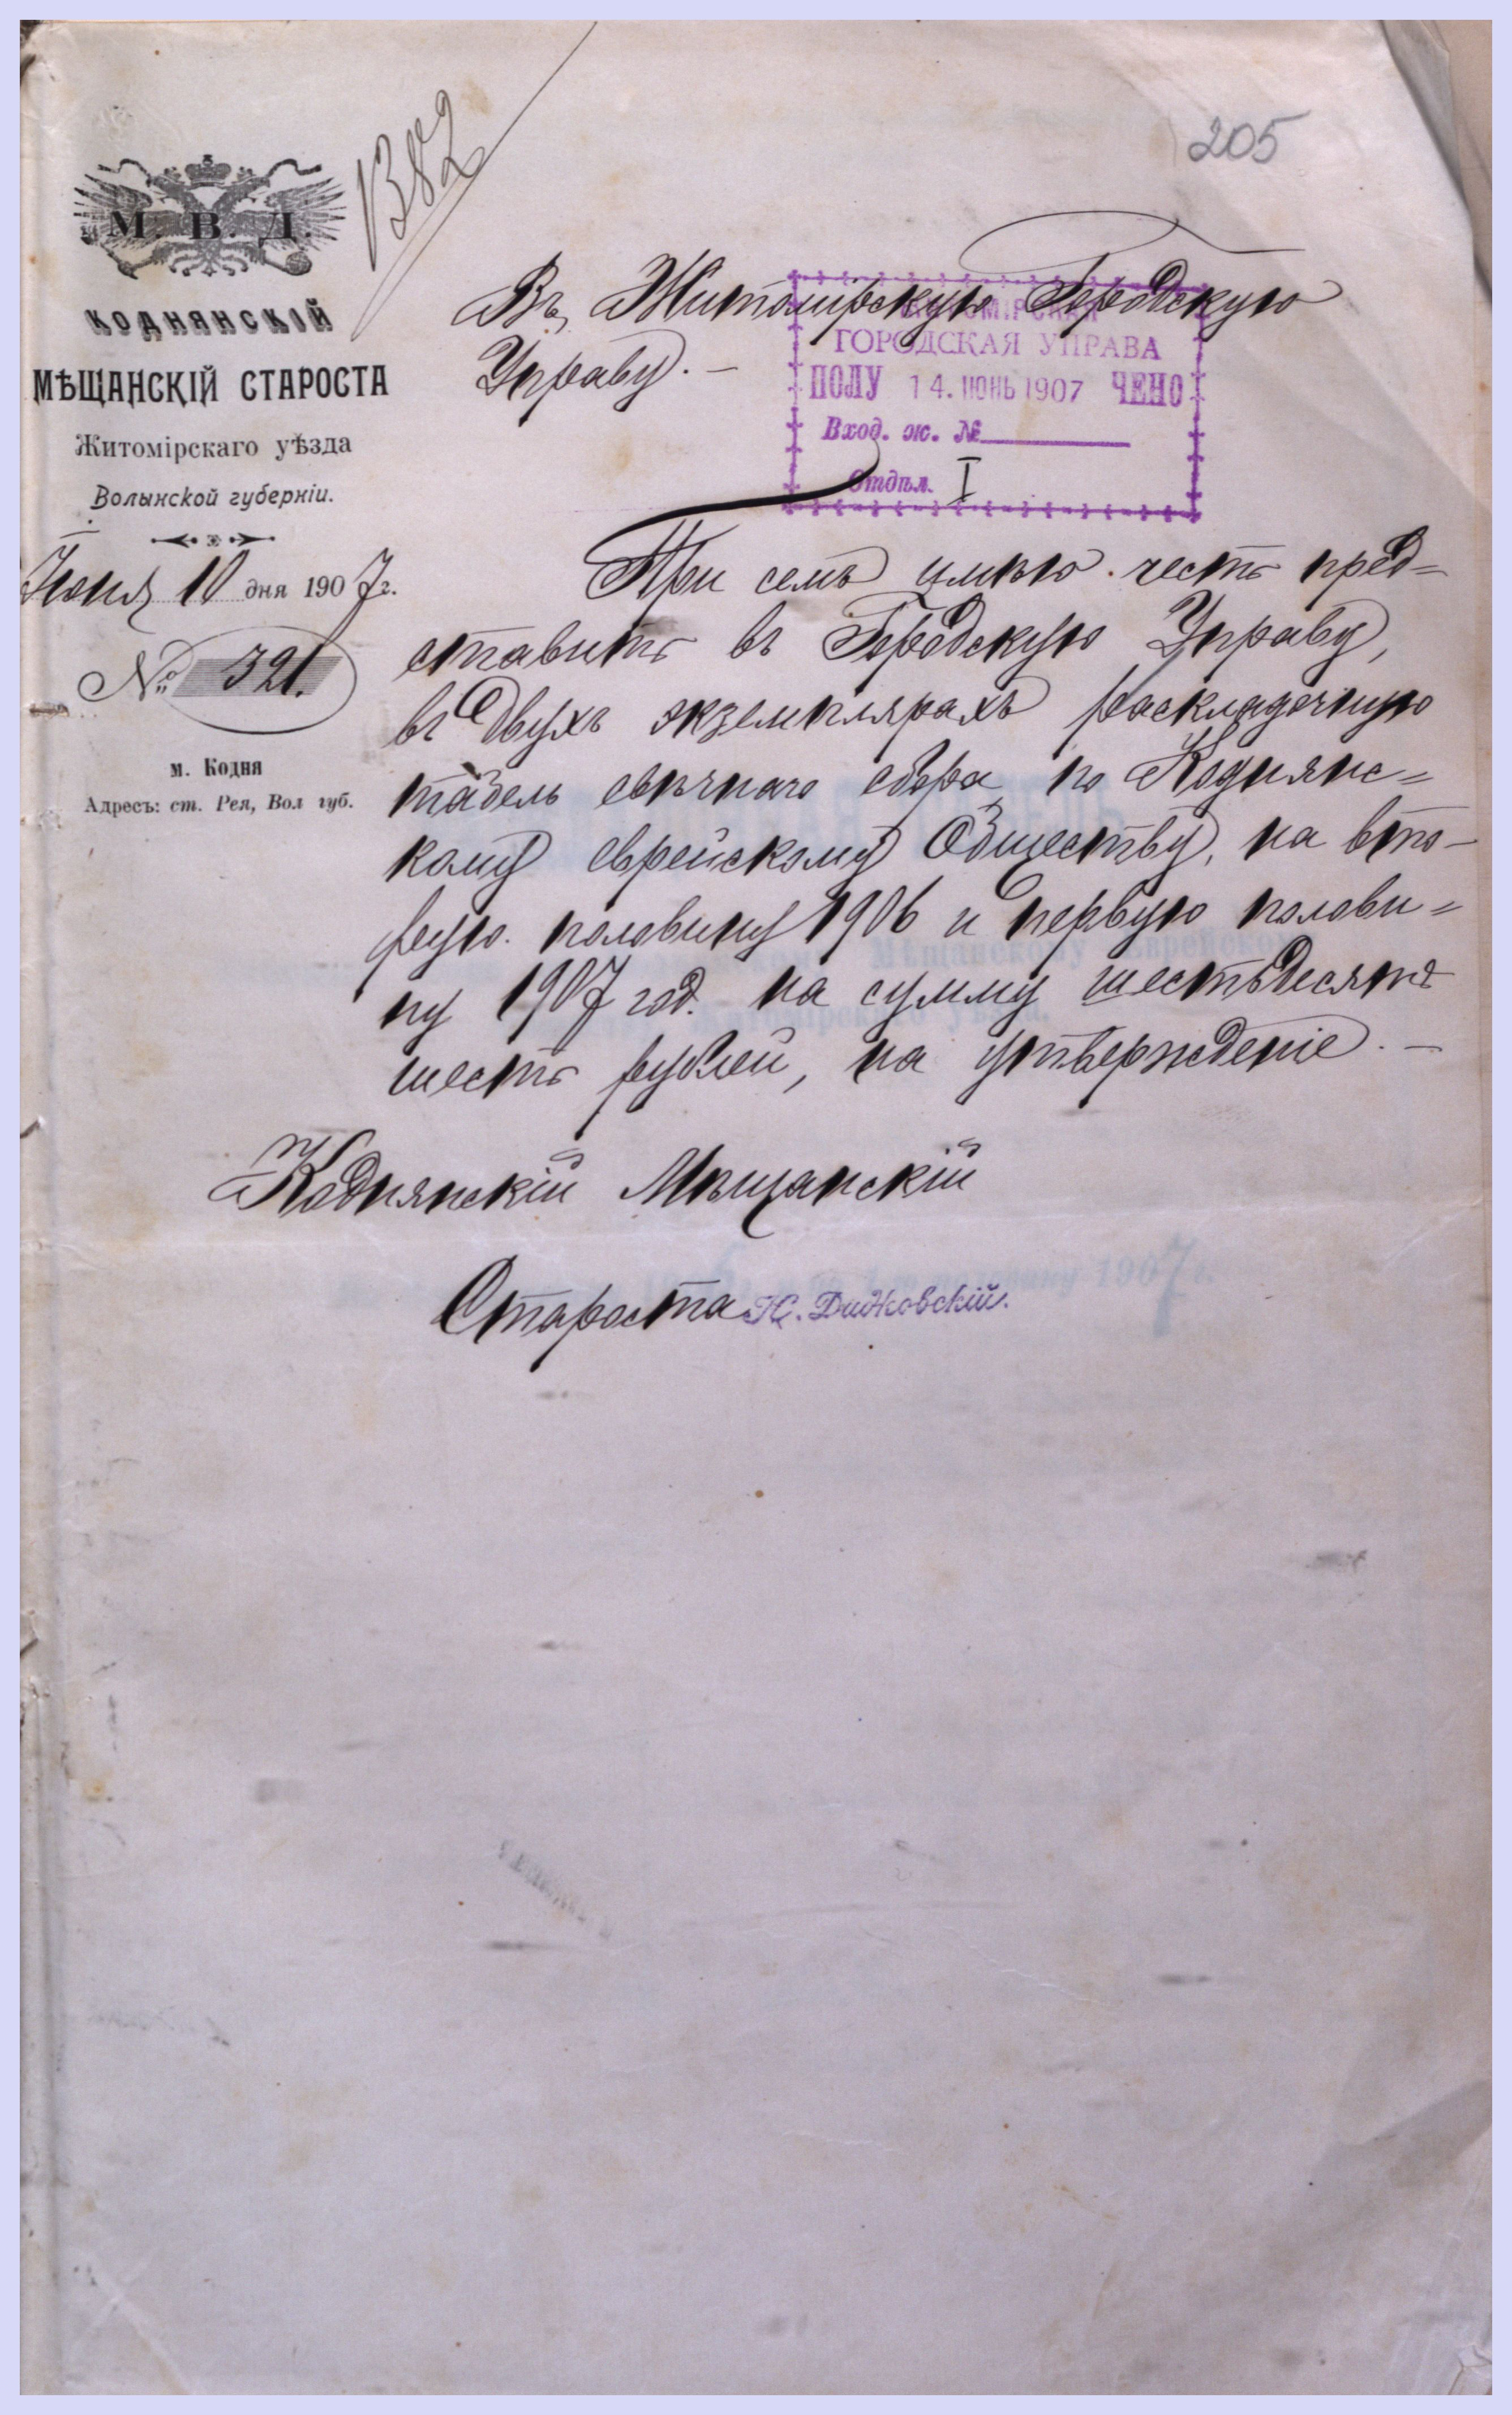 205
1382
М. В. Д.
КОДНЯНСКІЙ
МѢЩАНСКІЙ СТАРОСТА
Житомірскаго уѣзда
Волынской губерніи.
Іюня 10 дня 1907 г.
№ 321.
м. Кодня
Адресъ: ст. Рея, Вол губ.
Въ Житомірскую Городскую
Управу. —
ЖИТОМІРСКАЯ
ГОРОДСКАЯ УПРАВА
ПОЛУ 14. ІЮНЬ 1907 ЧЕНО
Вход. ж. №
Отдѣл. I
При семъ имѣю честь пред=
ставить въ Городскую Управу,
въ двухъ экземплярахъ раскладочную
табель свѣчнаго сбора по Коднянс=
кому еврейскому Обществу, на вто-
рую половину 1906 и первую полови=
ну 1907 год. на сумму шестьдесятъ
шесть рублей, на утвержденіе. —
Коднянскій Мѣщанскій
Староста К. Дидковскій.